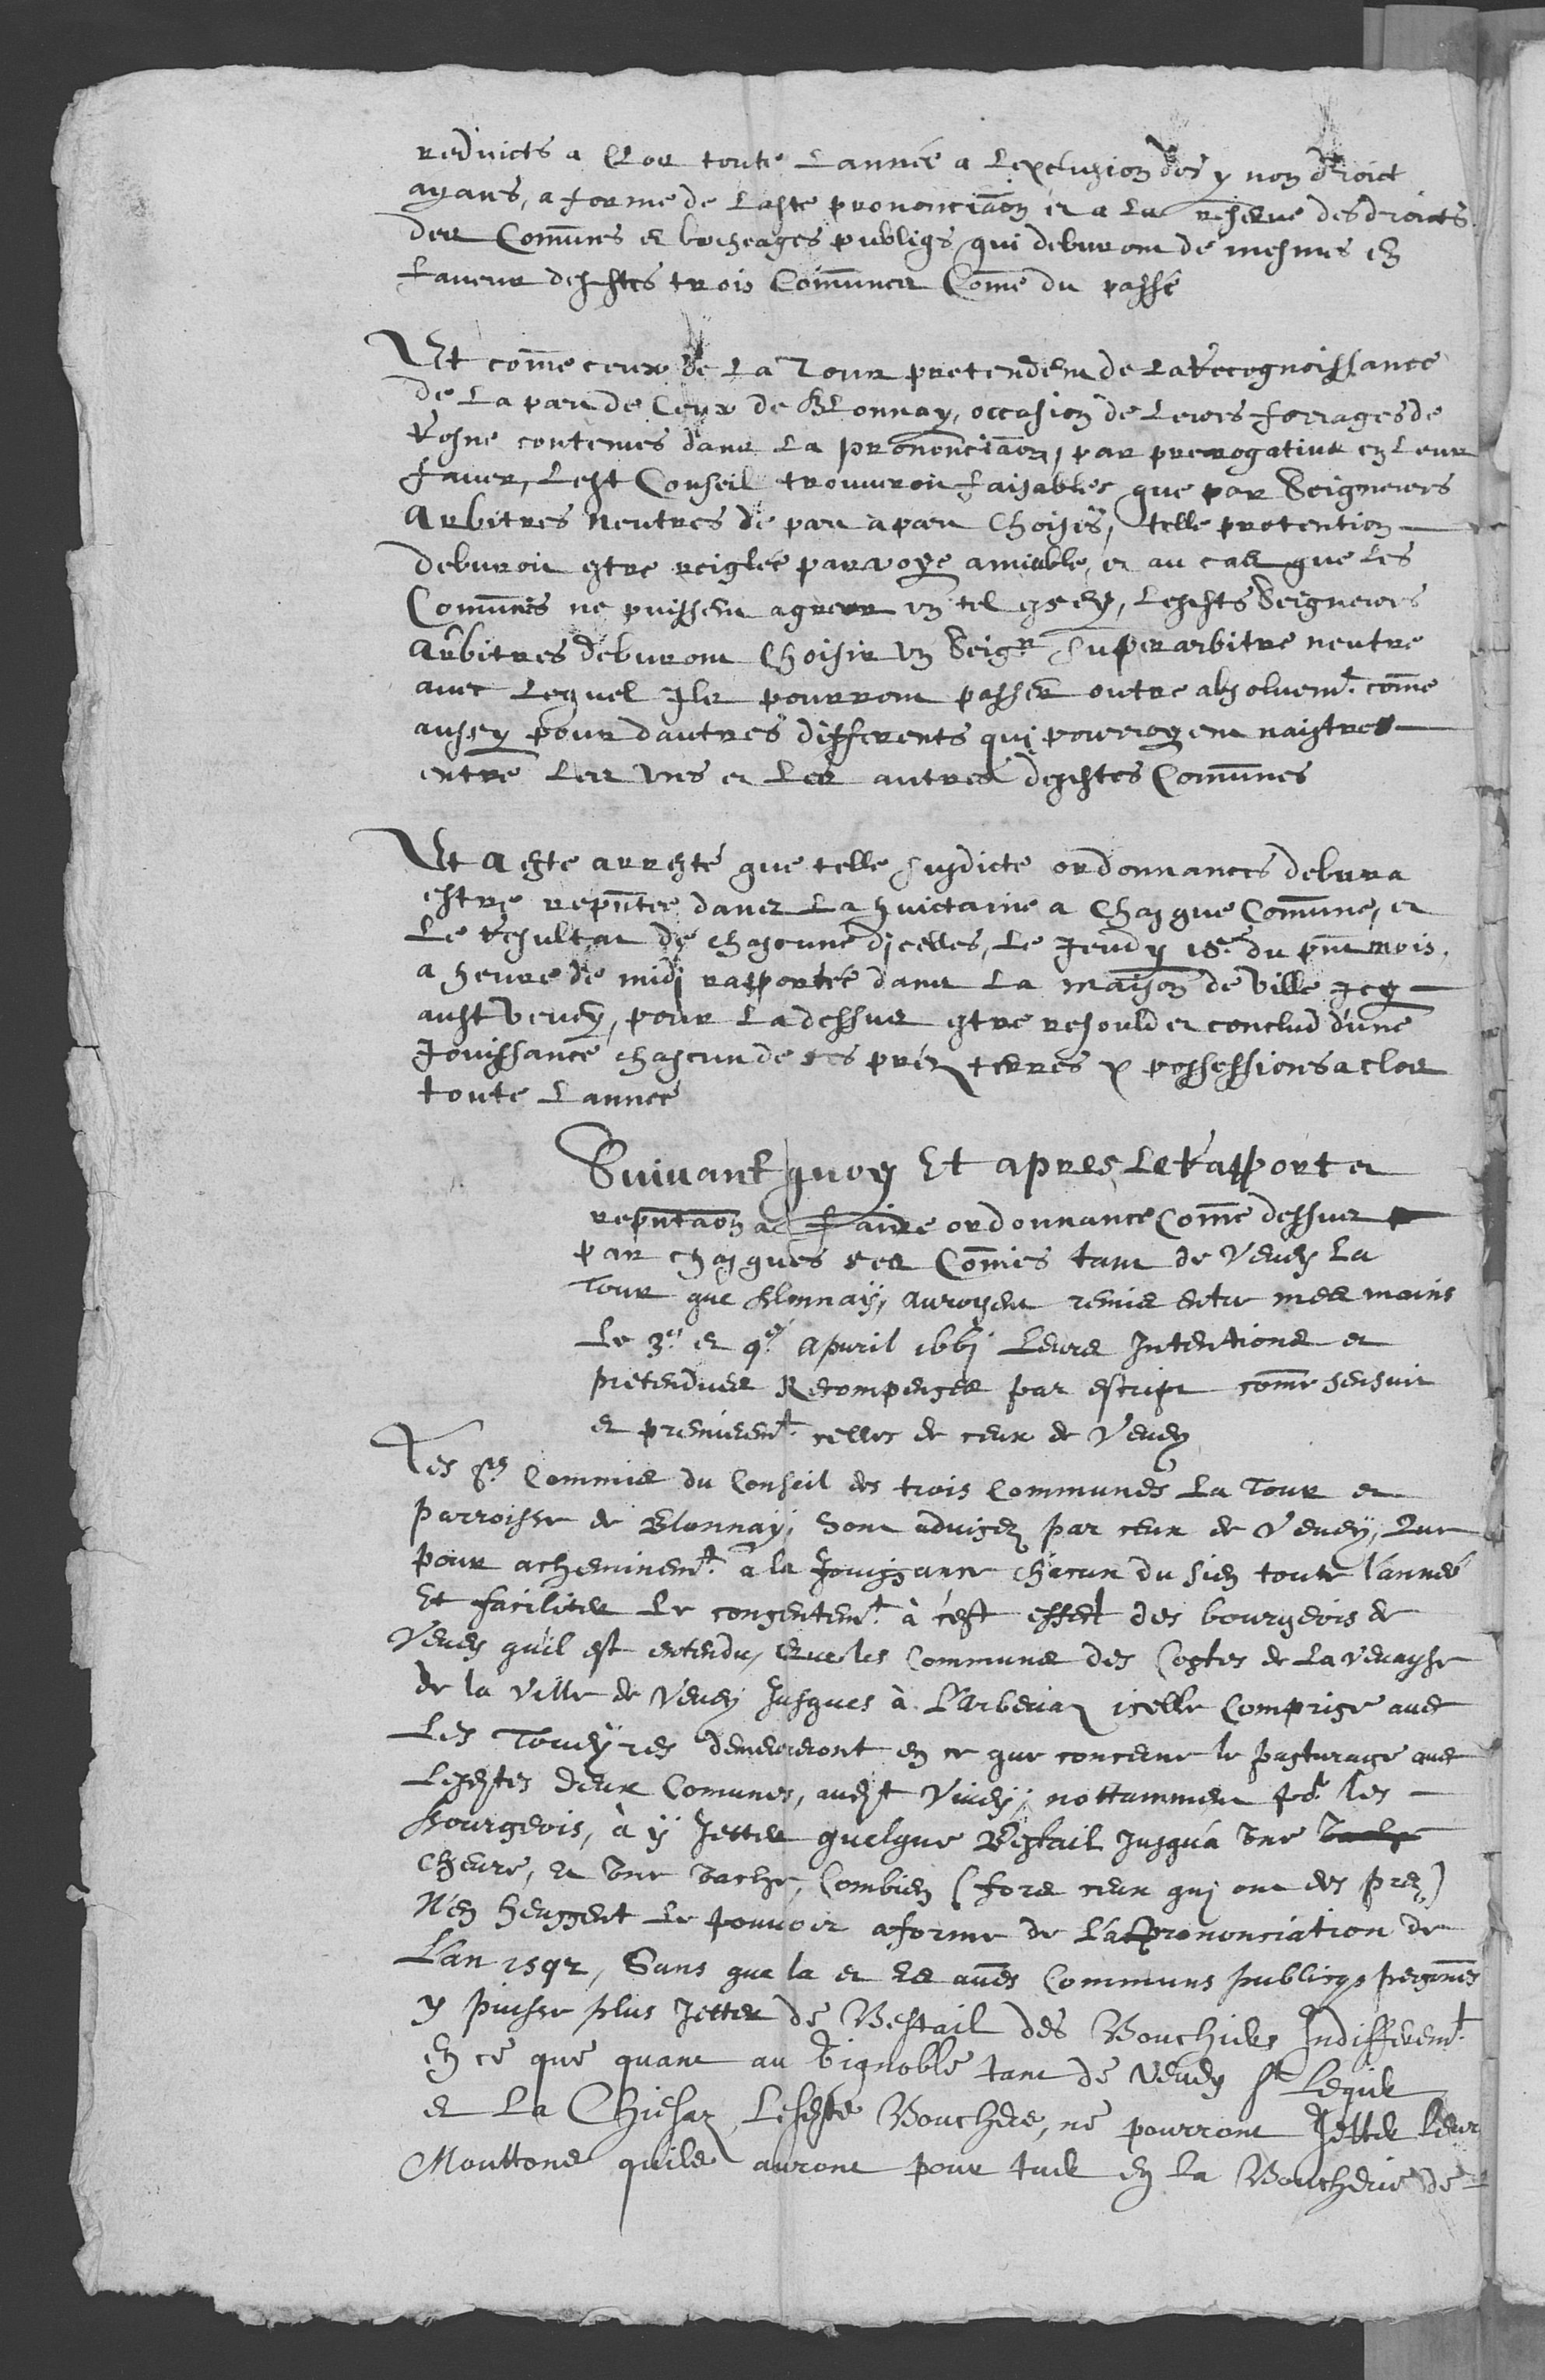 reduicts a Clos toute Lannée a Lexclusion des y non droict
ayans, a forme de Laste prononciaõn et a La reserve des droicts
des Comũnes et bocheages publiqs qui debvront de mesmes en
faveur desstes trois Comũnes Com̃e du passé
Et com̃e ceux de La Tour pretendent de La Recognoissance
de La part de Ceux de Blonnay, occasion de Leurs forrages de
Rosne contenus dans La prononciaõn, par prerogative en Leur
faver, Lest Conseil trouveroit faisables que par Seigneurs
Arbitres neutres de part a part Choisis, telle pretention
debvroit estre reiglée par voye amiable, et au cas que Les
Comũnes ne puissent agreer un tel essey, Lesdts Seigneurs
Arbitres debvront Choisir un Seigr Superarbitre neutre
avec Lequel Ils pourront passer outre absoluemt. com̃e
aussy pour dautres differents qui pourroyent naistres
entre Les unes et Les autres desstes Comũnes
Et a este arresté que telle susdicte ordonnances debvra
estre repñtee dans La huictaine a Chasque Comũne, et
Le Resultat de chascune dicelles, Le Jeudy 18e. du pñt mois,
a heure de midi rapportée dans La maison de Ville Icy
audt Vevey, pour La dessus estre resould et conclud d'une
Jouissance chascun de ses préz terres & possessions a clos
toute Lannee
Suivant quoy Et apres Le Rapport et
repñtaõn a faire ordonnance Com̃e dessus
par chasques des Com̃is tant de Vevey La
Tour que Blonnaÿ, auroyent remis entre mes mains
Le 3e. et 9e. Apvril 1661 Leurs Intentions et
pretendues Recompenses par escript com̃e sensuit
et premieremt. celles de ceux de Vevey
Les Srs Commis du Conseil des trois Communes La Tour et
Parroisse de Blonnaÿ, Sont advisez par ceux de Veveÿ, Que
pour acheminemt. a la Jouissance chãcun du sien toute l'année
Et faciliter Le consentemt. à cest effect des bourgeois de
Vevey quil est entendu, Que les Communes des Costes de La Vevayse
de la Ville de Vevey Jusques à L'Arbeviaz icelle Comprise avec
Les Toveÿres demeureront en ce que concerne le pasturage avec
Lesdtes deux Comunes, audit Viveÿ, nottamment por les
Bourgeois, à y Jetter quelque Bestail Jusqu'a Une
Chevre, et Une Vache, Combien (fors ceux qui ont des prez)
N'en heussent Le pouvoir a forme de L'aspronontiation de
L'an 1592, Sans que la et es aũes Communs publiqs personnes
y puisse plus Jetter de Bestail des Bouchiers Indifferemt.
En ce que quant au Vignoble tant de Vevey St Legier
et La Chiesaz Lesdts Bouchers, ne pourront Jetter leurs
Mouttons quils auront pour tuer en La Boucherie de